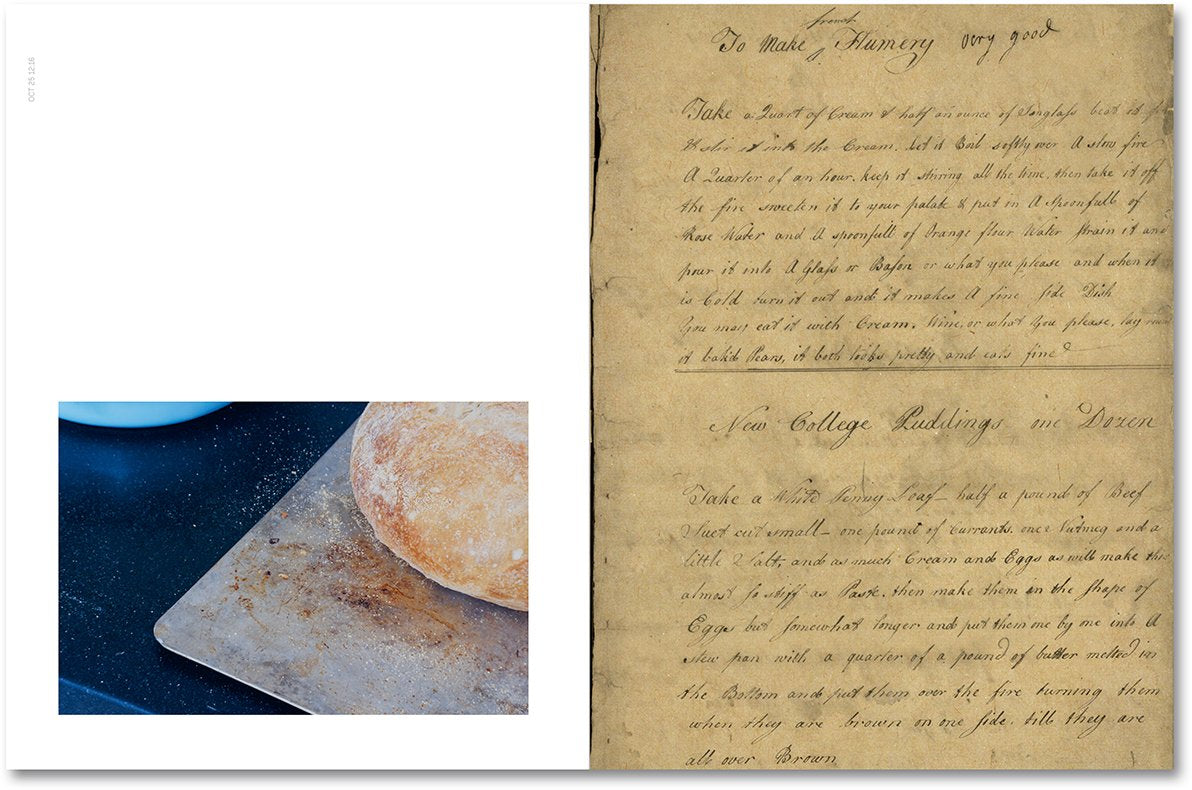 OCT 25 12:16
french
To Make Flumery very good
Take a Quart of Cream & half an ounce of Isinglass beat it
& stir it into the Cream. let it Boil softly over A slow fire
A Quarter of an hour. keep it stirring all the time, then take it off
the fire sweeten it to your palate & put in A spoonfull of
Rose Water and A spoonfull of Orange flour Water strain it and
pour it into A Glass or Bason or what you please and when it
is Cold turn it out and it makes A fine side Dish
You may eat it with Cream, Wine, or what You please, lay round
it bak'd Pears, it both looks pretty and eats fine
New College Puddings one Dozen
Take a White Penny Loaf— half a pound of Beef
Suet cut small— one pound of Currants. one Nutmeg and a
little Salt, and as much Cream and Eggs as will make this
almost so stiff as Paste. then make them in the shape of
Eggs but somewhat longer and put them one by one into A
stew pan with a quarter of a pound of butter melted in
the Bottom and put them over the fire turning them
when they are brown on one side. till they are
all over Brown